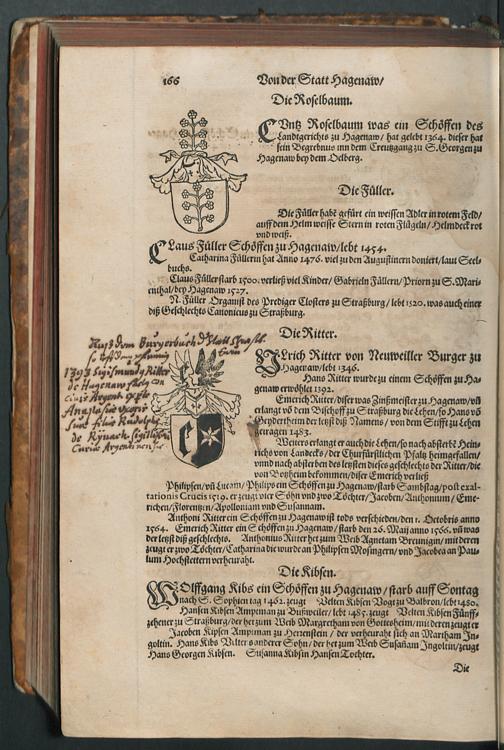 166
Von der Statt Hagenaw/
Die Roselbaum.
CUntz Roselbaum was ein Schöffen des
Landtgerichts zu Hagenaw/ hat gelebt 1364. dieser hat
sein Begrebnus inn dem Creutzgang zu S. Georgen zu
Hagenaw bey dem Oelberg.
Die Füller.
Die Füller habē gefürt ein weissen Adler in rotem Feld/
auff dem Helm weisse Stern in roten Flügeln/ Helmdeck rot
vnd weiß.
CLaus Füller Schöffen zu Hagenaw/ lebt 1454.
Catharina Füllern hat Anno 1476. viel zu den Augustinern doniert/ laut Seel-
buchs.
Claus Füller starb 1500. verließ viel Kinder/ Gabrieln Füllern/ Priorn zu S. Mari-
enthal/ bey Hagenaw 1527.
N. Füller Organist des Prediger Closters zu Straßburg/ lebt 1520. was auch einer
diß Geschlechts Canonicus zu Straßburg.
Die Ritter.
VLrich Ritter von Neuweiller Burger zu
Hagenaw/ lebt 1346.
Hans Ritter wurde zu einem Schöffen zu Ha-
genaw erwöhlet 1392.
Emerich Ritter/ diser was Zinßmeister zu Hagenaw/ vñ
erlangt võ dem Bischoff zu Straßburg die Lehen/ so Hans võ
Geydertheim der letst diß Namens/ von dem Stifft zu Lehen
getragen 1483.
Weiters erlangt er auch die Lehen/ so nach absterbē Hein-
richs von Landecks/ der Churfürstlichen Pfaltz heimgefallen/
vnnd nach absterben des letsten dieses geschlechts der Ritter/ die
von Botzheim bekommen/ diser Emerich verließ
Philipsen/ vñ Lucam/ Philips ein Schöffen zu Hagenaw/ starb Sambstag/ post exal-
tationis Crucis 1519. er zeugt vier Söhn vnd zwo Töchter/ Jacoben/ Anthonium/ Eme-
richen/ Florentzen/ Apolloniam vnd Susannam.
Anthoni Ritter ein Schöffen zu Hagenaw ist tods verschieden/ den 1. Octobris anno
1564. Emerich Ritter ein Schöffen zu Hagenaw/ starb den 26. Maij anno 1566. vñ was
der letst diß geschlechts. Anthonius Ritter het zum Weib Agnetam Breunigin/ mit deren
zeugt er zwo Töchter/ Catharina die wurde an Philipsen Mosingern/ vnd Jacobea an Pau-
lum Hochstettern verheuraht.
Die Kibsen.
WOlffgang Kibs ein Schöffen zu Hagenaw/ starb auff Sontag
nach S. Sophien tag 1462. zeugt Velten Kibsen Vogt zu Balbron/ lebt 1480.
Hansen Kibsen Amptman zu Bußweiler/ lebt 1485. zeugt Velten Kibsen Fünff-
zehener zu Straßburg/ der het zum Weib Margretham von Gottesheim/ mit deren zeugt er
Jacoben Kipsen Amptman zu Herrenstein/ der verheuraht sich an Martham In-
goltin. Hans Kibs Velters anderer Sohn/ der het zum Weib Susañam Ingoltin/ zeugt
Hans Georgen Kibsen. Susanna Kibsin Hansen Tochter.
Die
Auß dem burgerbuch
1393 Sigismundus Ritter
de Hagenaw
Argent.
Anastasia
filia Rudolphi
de
Curiae Argentinen